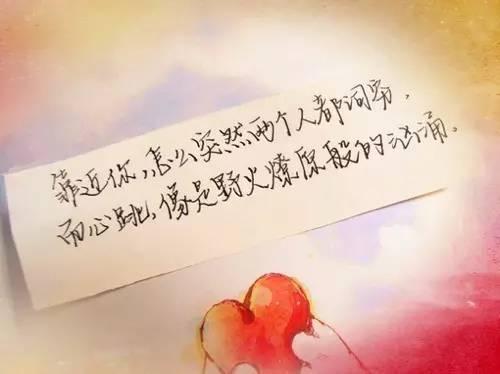 靠近你，怎么突然两个人都词穷，
而心跳，像是野火燎原般的汹涌。